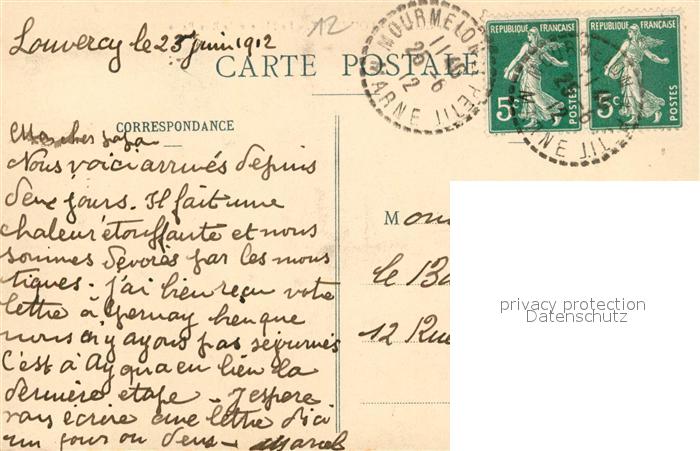 Louvercy le 25 juin 1912
12
CARTE POSTALE
MOURMELON-LE-PETIT
MARNE
11 45
25-6
12
REPUBLIQUE FRANÇAISE
5c
POSTES
REPUBLIQUE FRANÇAISE
5c
POSTES
CORRESPONDANCE
Mon cher papa
Nous voici arrivés depuis
deux jours. Il fait une
chaleur étouffante et nous
sommes dévorés par les mous
tiques. J'ai bien reçu votre
lettre à Epernay bien que
nous n'y ayons pas séjournés
C'est à Ay qu'a eu lieu la
dernière etape. J'espere
vous écrire une lettre d'ici
un jour ou deux. Marcel
M
le Ba
12 Rue
privacy protection
Datenschutz